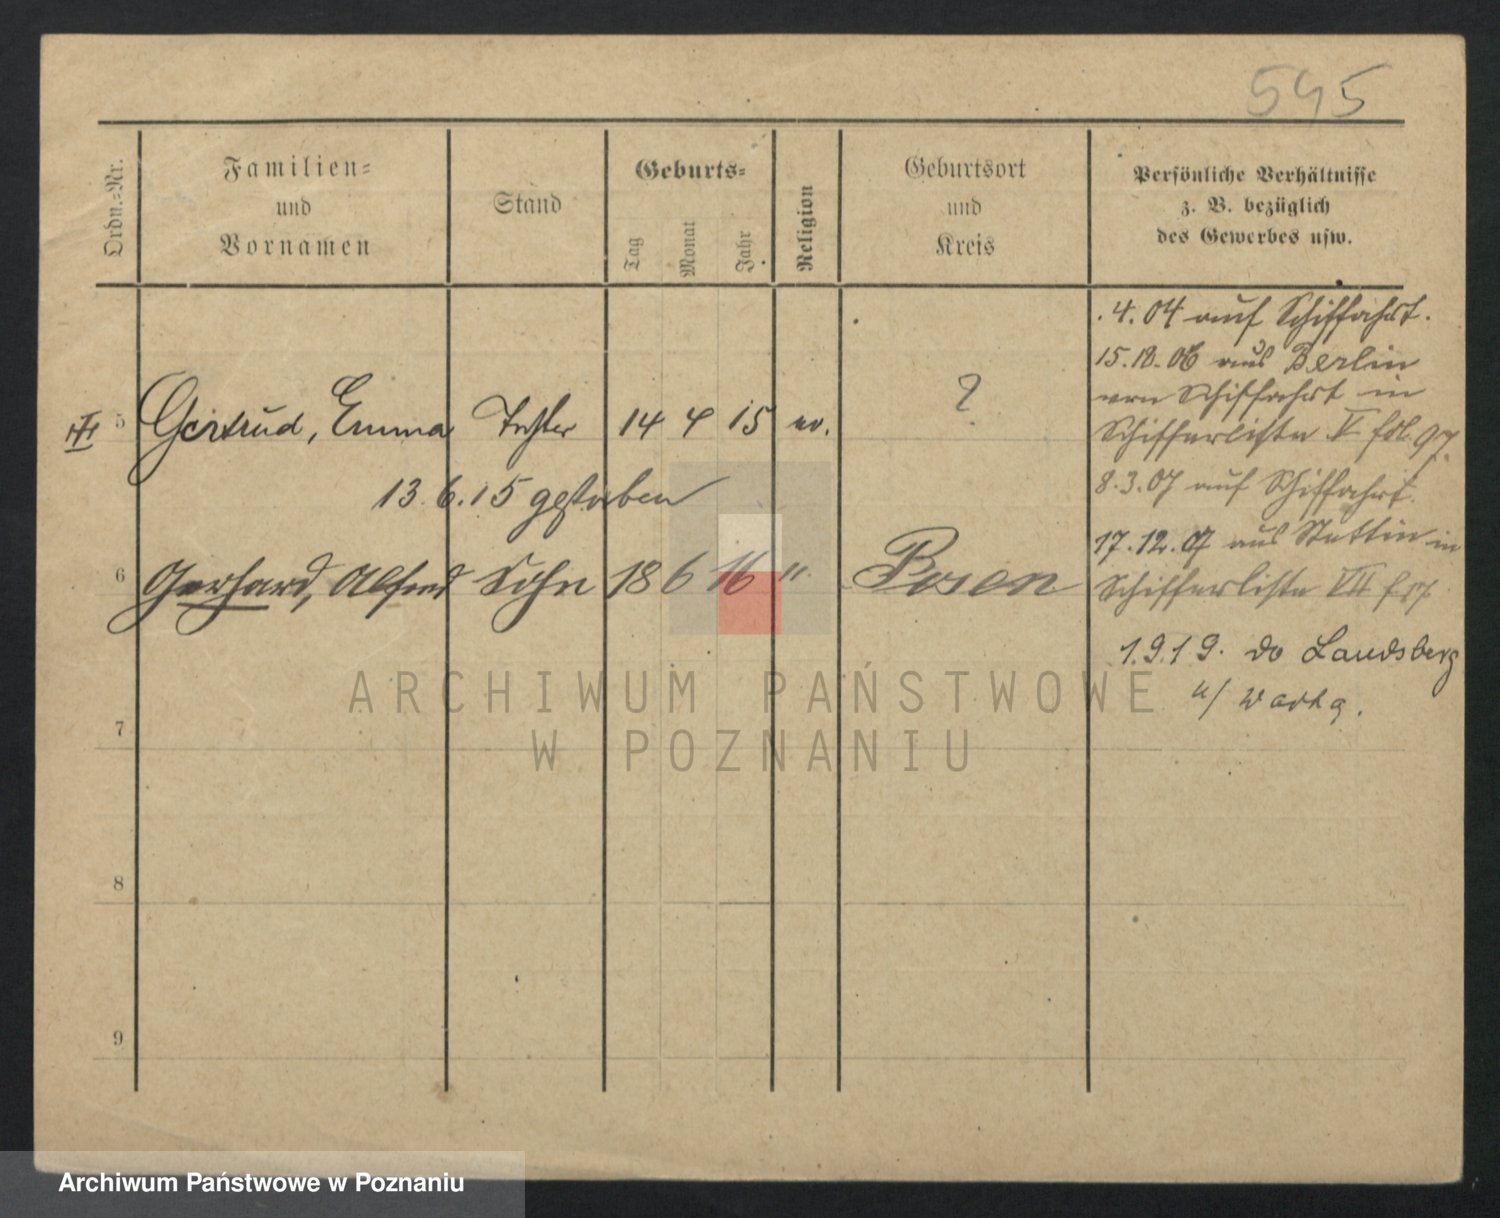 545
Ordn.-Nr.
Familien-
und
Vornamen
Stand
Geburts-
Tag
Monat
Jahr
Religion
Geburtsort
und
Kreis
Persönliche Verhältnisse
z. B. bezüglich
des Gewerbes usw.
.4.04 auf Schiffahrt.
15.12.06 aus Berlin
von Schiffahrt in
Schifferliste V fol. 97.
8.3.07 auf Schiffahrt.
17.12.07 aus Stettin in
Schifferliste VII
1.9.19. do Landsberg
a/ Warta.
5 Gertrud, Emma Tochter 14 4 15 ev. ?
13.6.15 gestorben
6 Gerhard, Alfred Sohn 18 6 16 " Posen
7
8
9
ARCHIWUM PAŃSTWOWE
W POZNANIU
Archiwum Państwowe w Poznaniu